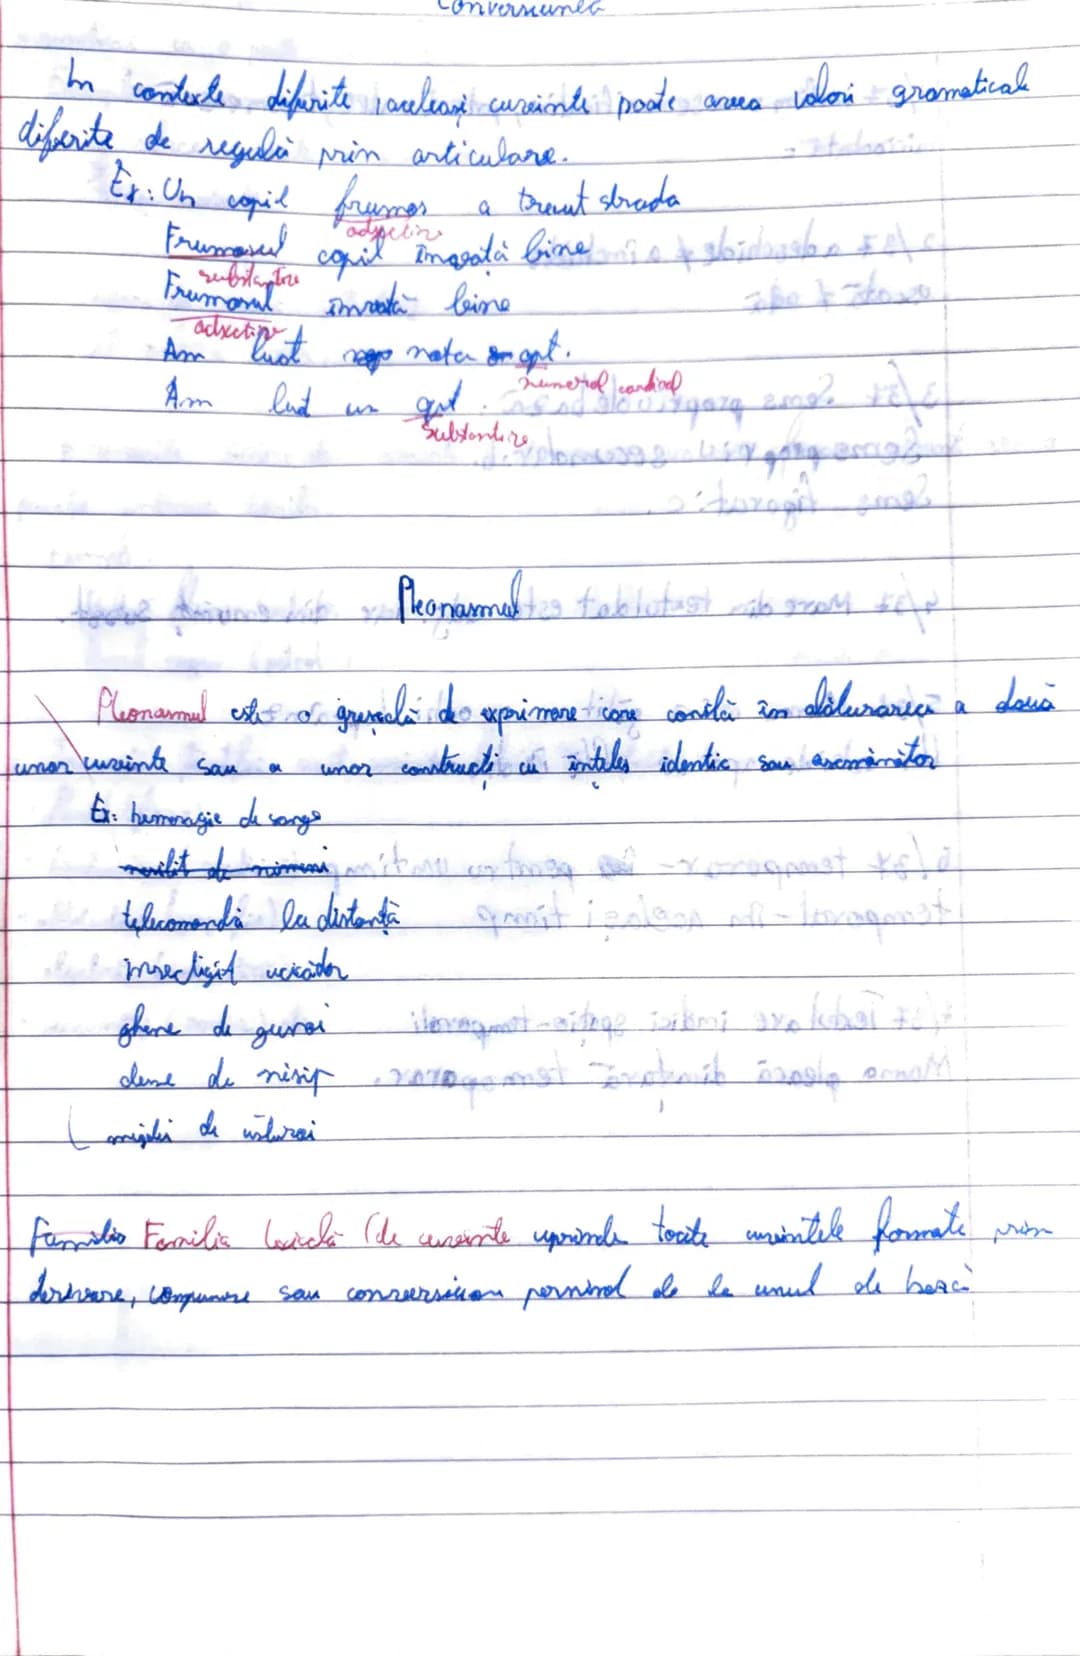 Conversiunea
In contexte diferite, aceleași cuvinte poate avea valori gramaticale
diferite de regulă prin articulare.
Ex: Un copil frumos a trecut strada
adjectiv
Frumosul copil învață bine
substantive
Frumosul învată bine
adjectiv
Am luat nota opt.
numeral cardinal
Am luat un opt.
Substantive
Pleonasmul
Pleonasmul este o greșeală de exprimare care constă în alăturarea a două
unor cuvinte sau a unor construcți cu înțeles identic sau asemănător
Ex: hemoragie de sange
nevilit de nimeni
telecomandă la distanță
insecticid ucicător
ghene de gunoi
dune de nisip
mujdei de usturoi
Familia Familia lexicală (de cuvinte cuprinde toate cuvintele formate prin
derivare, compunere sau conversiune pornind de la unul de bază